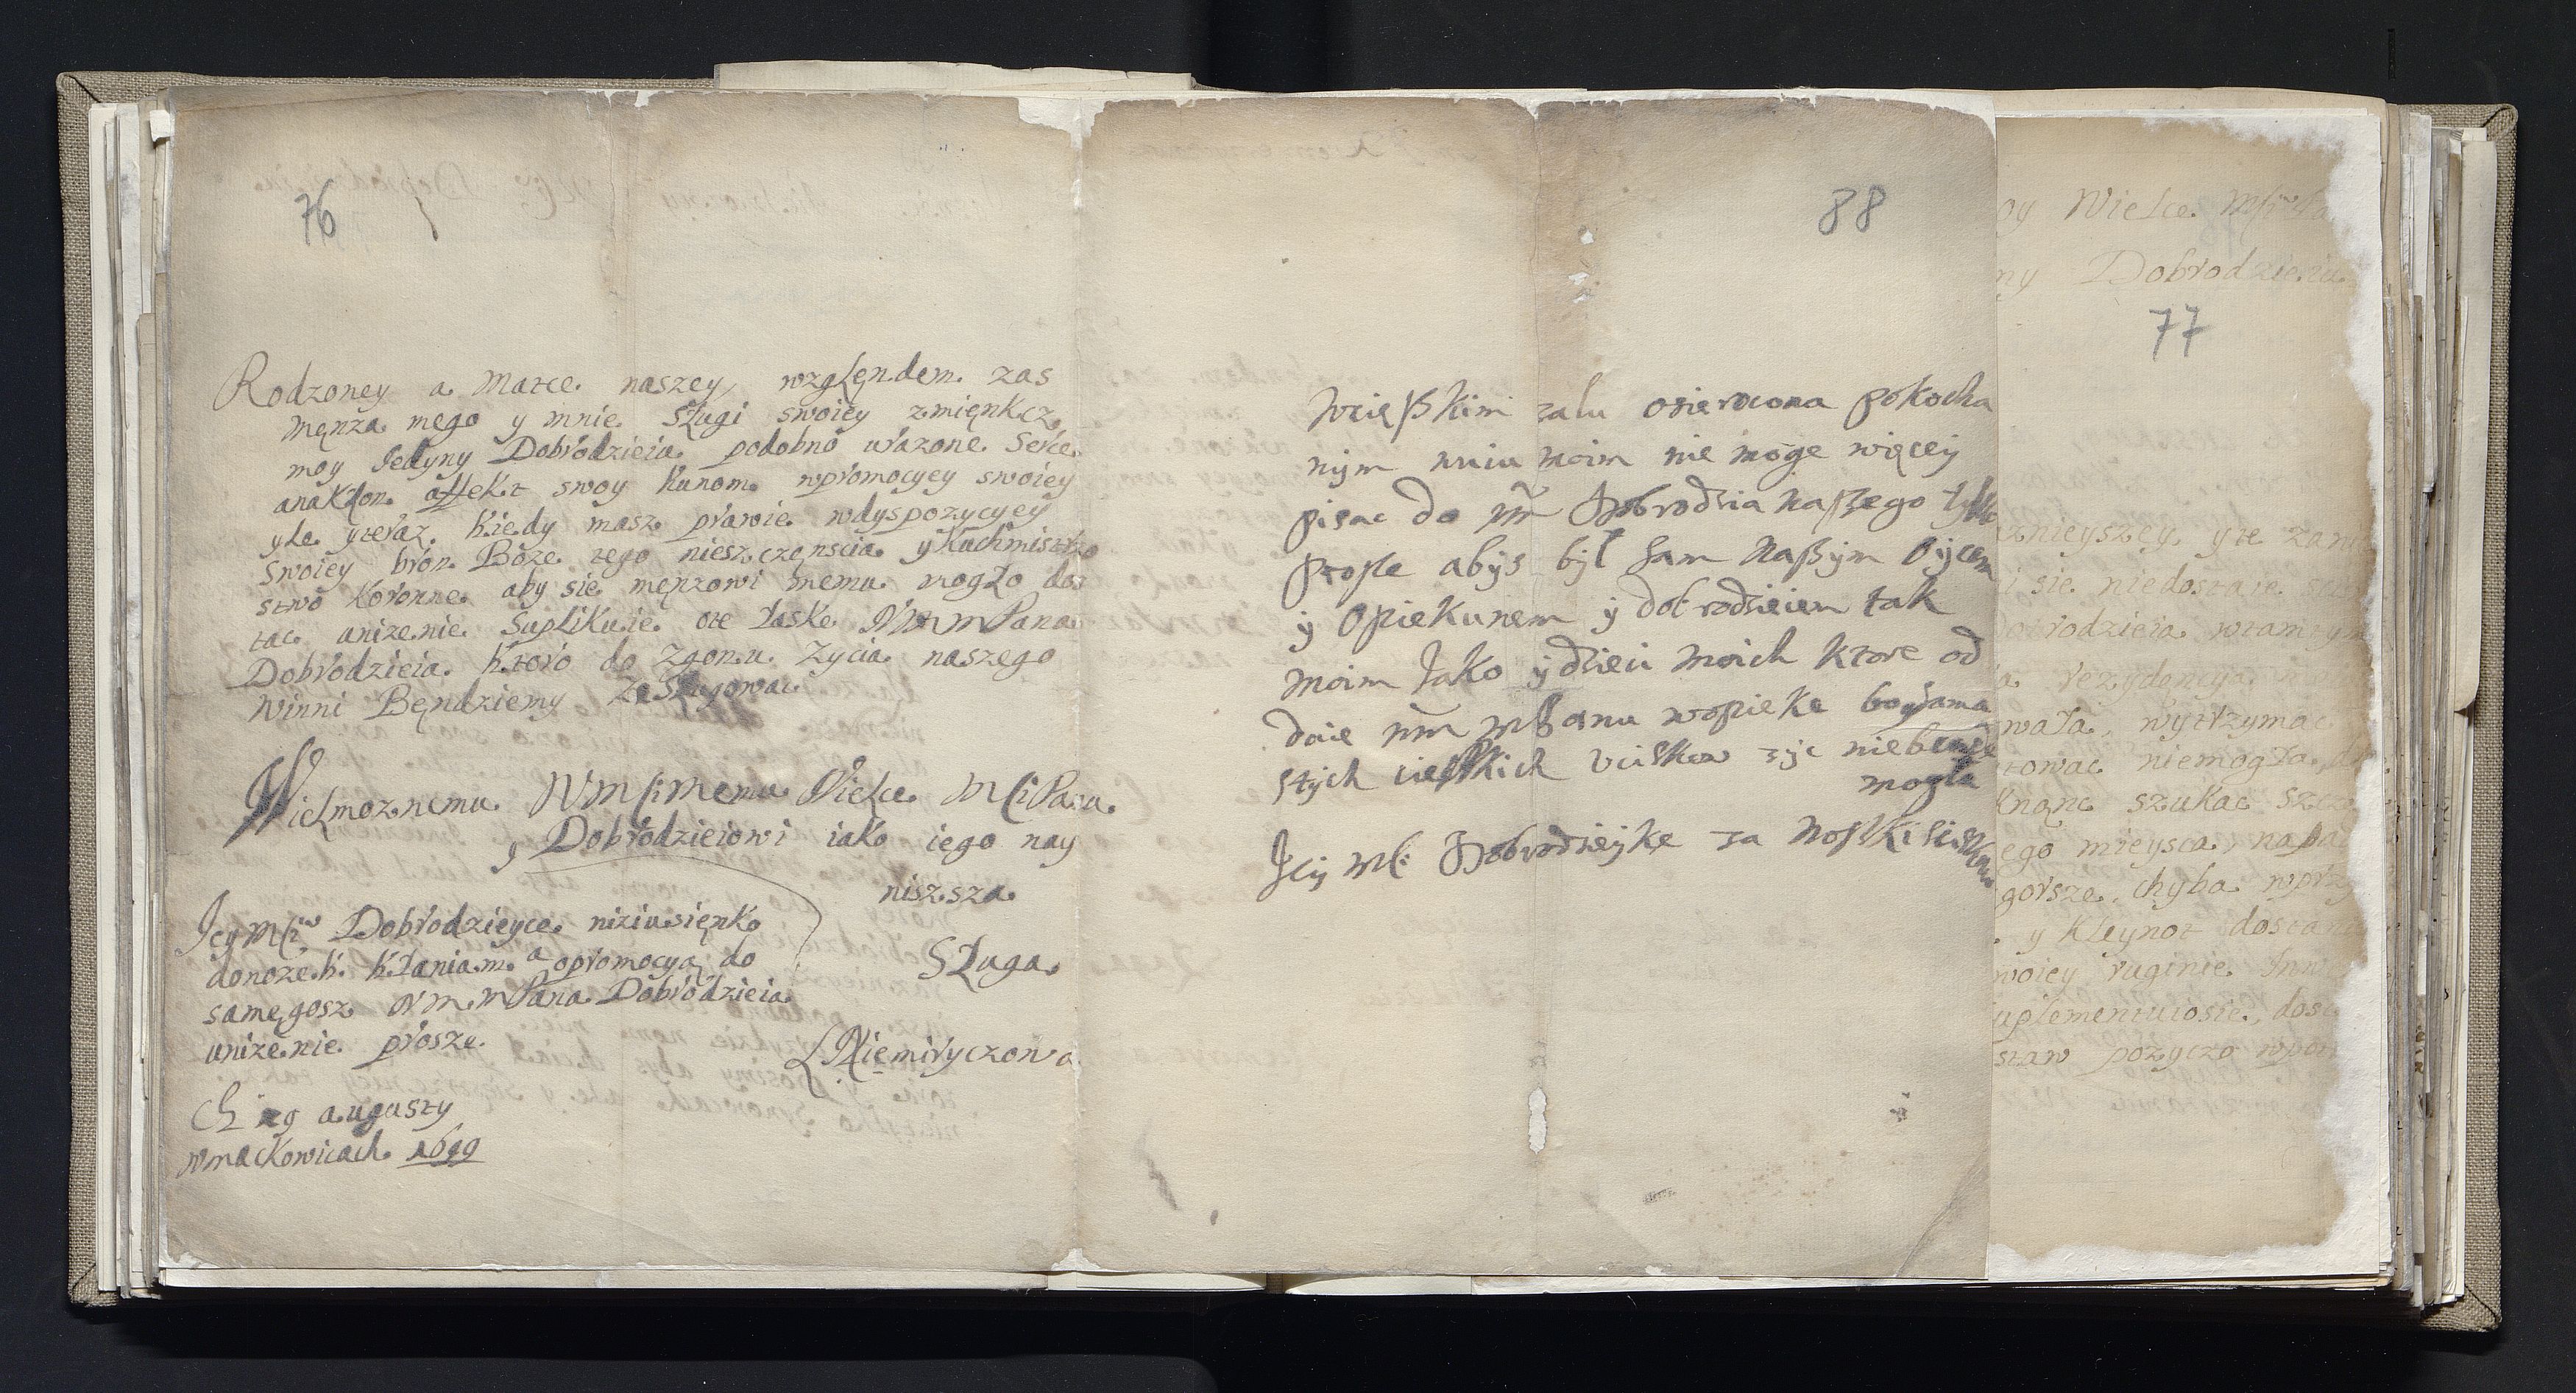 76
Rodzoney a Matce naszey, względem zas
męnża mego y mnie Sługi swoiey zmięnkcz
moy Jedyny Dobrodzieia podobno urazone Serce
anakłon affekt swoy kunom wpromocyey swoiey
yle yteraz kiedy masz prawie wdyspozycyey
swoiey bron Boze tego niesz częnscia yKuchmistrzo
stwo Koronne aby sie męnzowi memu mogło dos
tac unizenie Suplikuie ote łaske WMmPana
Dobrodzieia ktoro do Zgonu Zycia naszego
Winni Bęndziemy Zasługowac
Wielmoznemu WmsiMemu Wielce MsiPanu
y Dobrodzieiowi iako iego nay
nisz sza
Sługa
LNiemiryczowa
JeyMsi Dobrodzieyce niziusięnko
donozek kłaniam a opromocyą do
samęgosz WmmPana Dobrodzieia
unizenie prosze
augusty
wmackowicach 1699
88
Wcięszkim zalu osierocona pokocha
nym moim nie moge więcey
pisac do Dobrodzia naszego tylko
prosze abys był sam naszym oycem
y Opiekunem y dobrodzieiem tak
moim Jako y dzieci moich ktore od
daie wopieke bo sama
stych cieszkich uciskow zyc niebende
mogła
Jey Mć Dobrodzieyke za noszki sciskam
oy Wielce
ny Dobrodzieiu
77
znieyszey yte
i sie niedostaie
rodzieia wtamtym
rezydencya
wała, wytrzymac
towac niemogła,
knąnc szukac
ego mieysca,
gorsze, chyba
y kleynot
woiey ruginie
uplementuiosie,
staw pozyczo